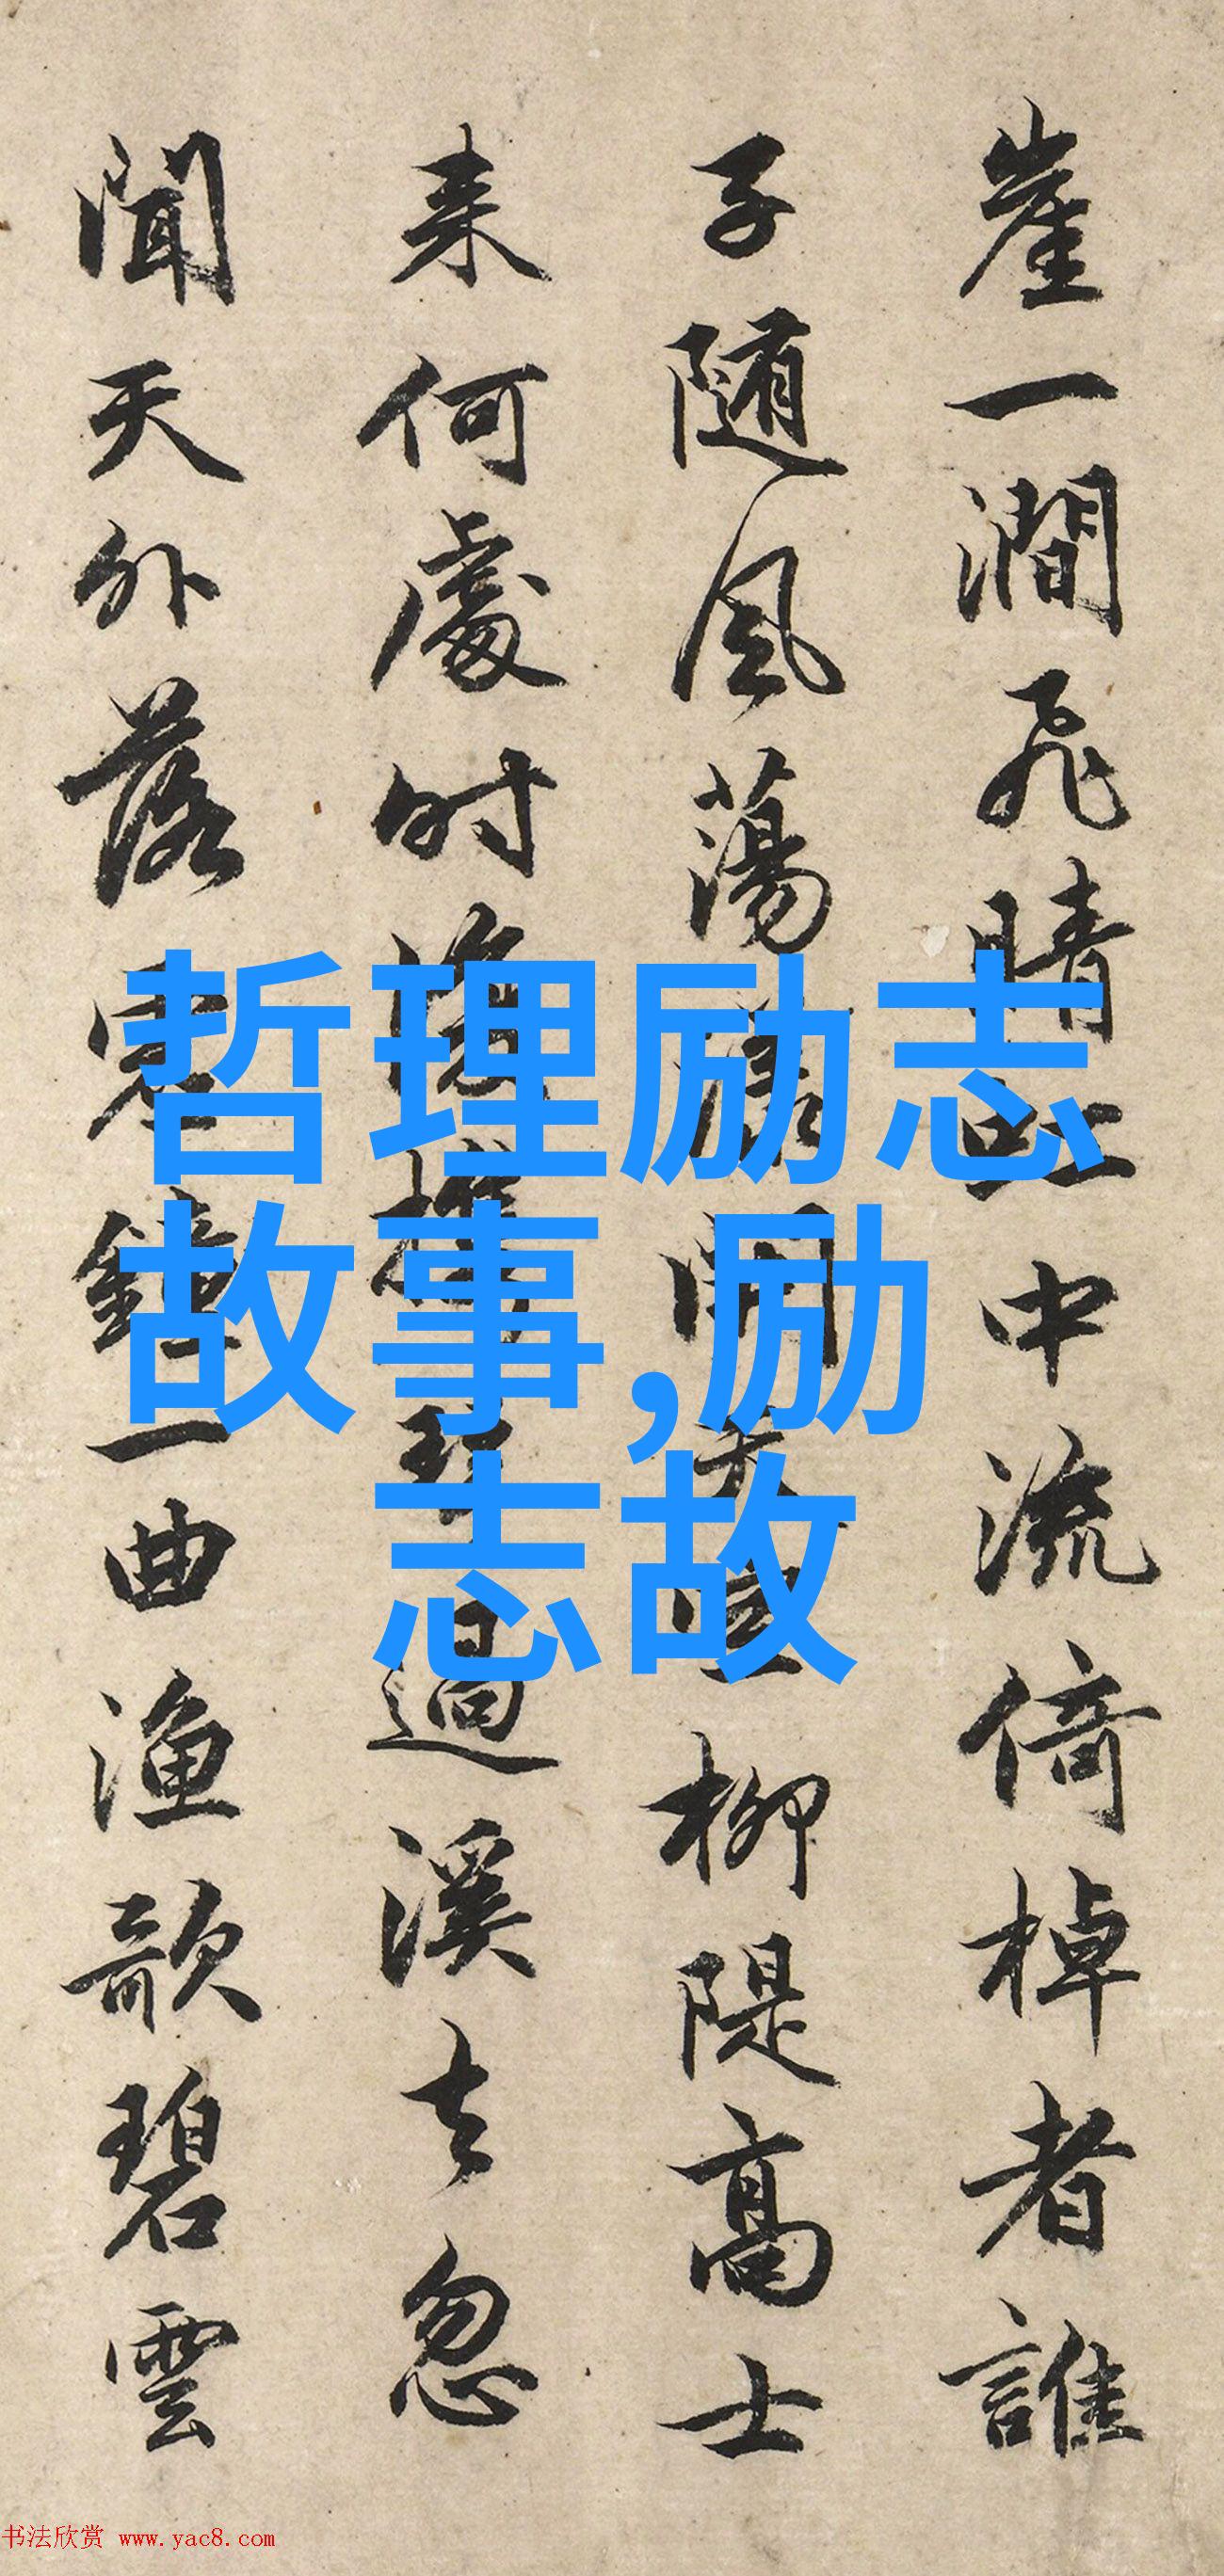 崖一澗飛晴虹中流倚棹者誰
子随風蕩開柳隄高士
来何處时携琴過溪去忽
聞天外落鐘一曲漁歌碧雲
哲理励志
故事,励
志故
书法欣赏 www.yac8.com